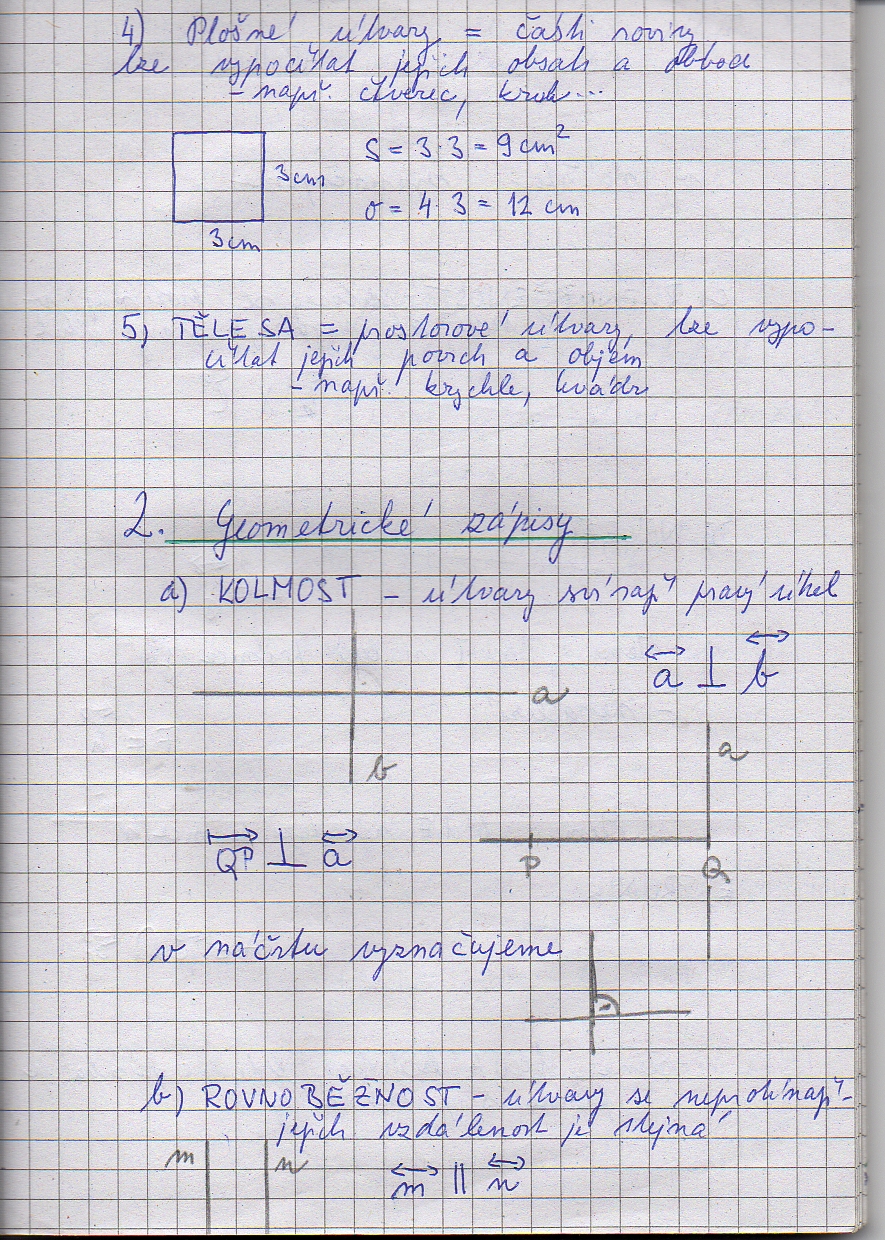 4) Plošné útvary = části roviny
lze vypočítat jejich obsah a obvod
- např. čtverec, kruh...
S = 3·3 = 9 cm²
3cm
o = 4·3 = 12 cm
3cm
5) TĚLESA = prostorové útvary, lze vypo-
čítat jejich povrch a objem
- např. krychle, kvádr
2. Geometrické zápisy
a) KOLMOST - útvary svírají pravý úhel
a
a ⊥ b
b
a
QP ⊥ a
P
Q
v náčrtu vyznačujeme
b) ROVNOBĚŽNOST - útvary se neprotínají -
jejich vzdálenost je stejná
m
n
m || n